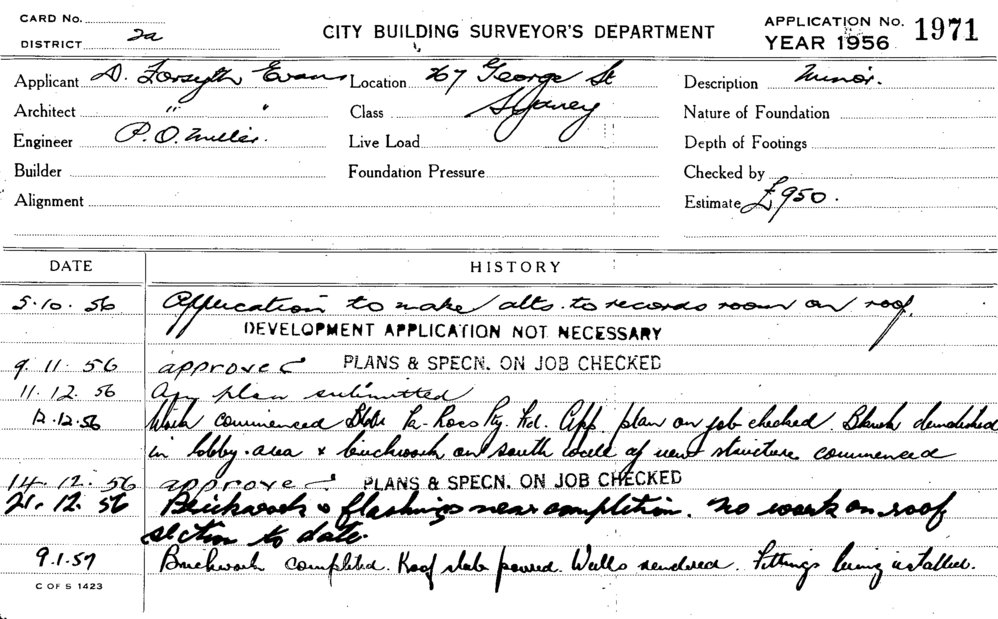 CARD No.
DISTRICT 2a
CITY BUILDING SURVEYOR'S DEPARTMENT
APPLICATION No. 1971
YEAR 1956
Applicant D. Forsyth Evans Location 267 George St Description Minor.
Architect " " Class Sydney Nature of Foundation
Engineer P.O. Miller. Live Load Depth of Footings
Builder Foundation Pressure Checked by
Alignment Estimate £950.
DATE HISTORY
5.10.56 Application to make alts. to records room on roof.
DEVELOPMENT APPLICATION NOT NECESSARY
9.11.56 approved PLANS & SPECN. ON JOB CHECKED
11.12.56 plan submitted
12.12.56 Work commenced Pty. Ltd. App. plan on job checked. demolished
in lobby area & brickwork on south walls of new structure commenced
14.12.56 approved PLANS & SPECN. ON JOB CHECKED
21.12.56 Brickwork & flashings near completion. No work on roof
section to date.
9.1.57 Brickwork completed. Roof slab poured. Walls rendered. Fittings being installed.
C OF S 1423